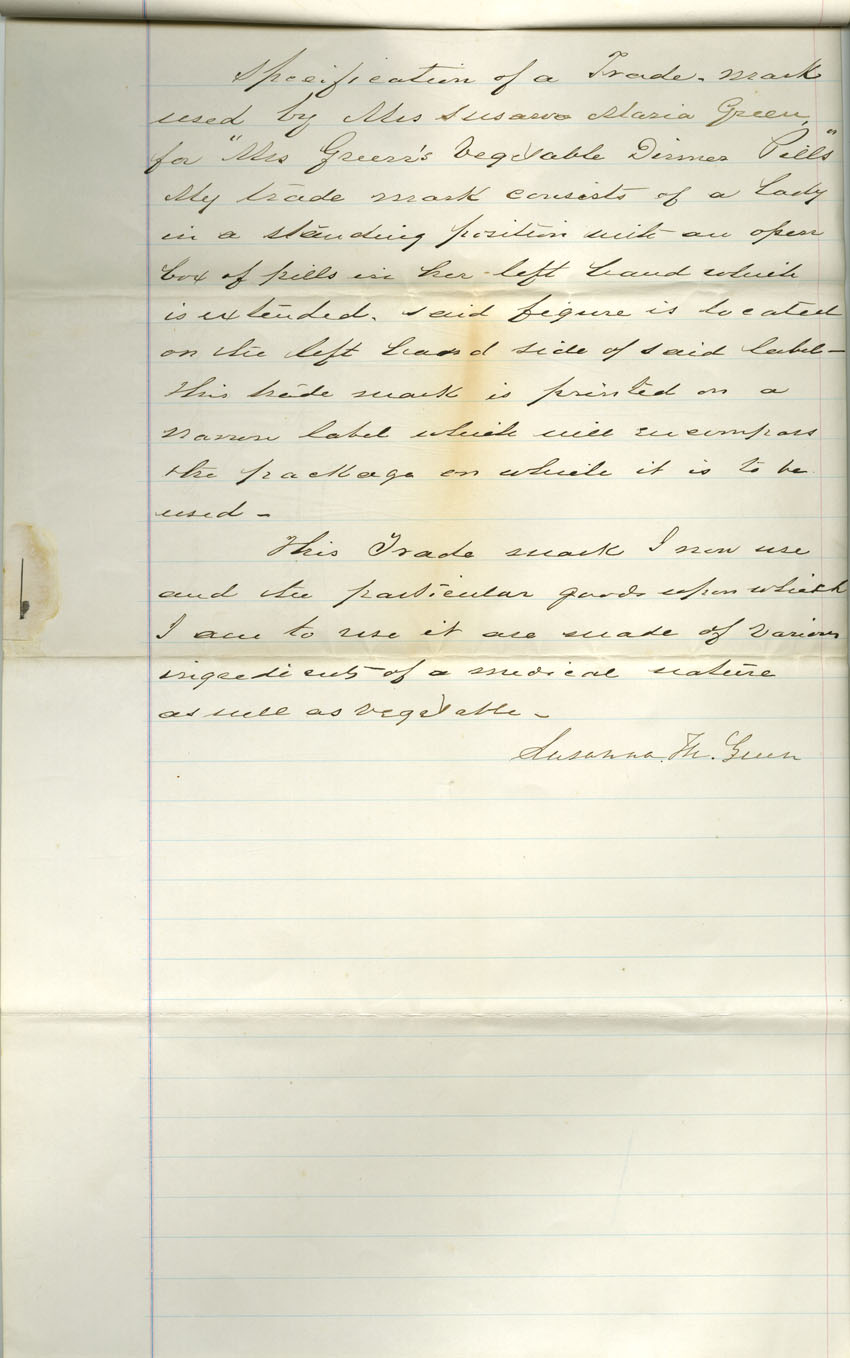 Specification of a Trade-mark
used by Mrs Susana Maria Green,
for "Mrs Green's Vegetable Dinner Pills"
My trade mark consists of a Lady
in a standing position with an open
box of pills in her left hand which
is extended. said figure is located
on the left hand side of said label-
This trade mark is printed on a
narrow label which will encompass
the package on which it is to be
used-
This Trade mark I now use
and the particular goods upon which
I am to use it are made of various
ingredients of a medical nature
as well as vegetable-
Susanna M. Green